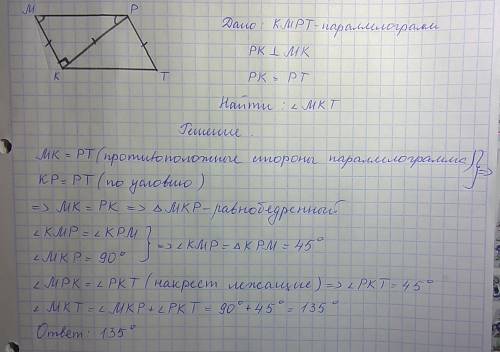 M P
K T
Дано: KMPT-параллелограмм
PK ⊥ MK
PK = PT
Найти: ∠MKT
Решение.
MK = PT (противоположные стороны параллелограмма)
KP = PT (по условию) } =>
=> MK = PK => △MKP - равнобедренный
∠KMP = ∠KPM
∠MKP = 90° } => ∠KMP = △KPM = 45°
∠MPK = ∠PKT (накрест лежащие) => ∠PKT = 45°
∠MKT = ∠MKP + ∠PKT = 90° + 45° = 135°
Ответ: 135°